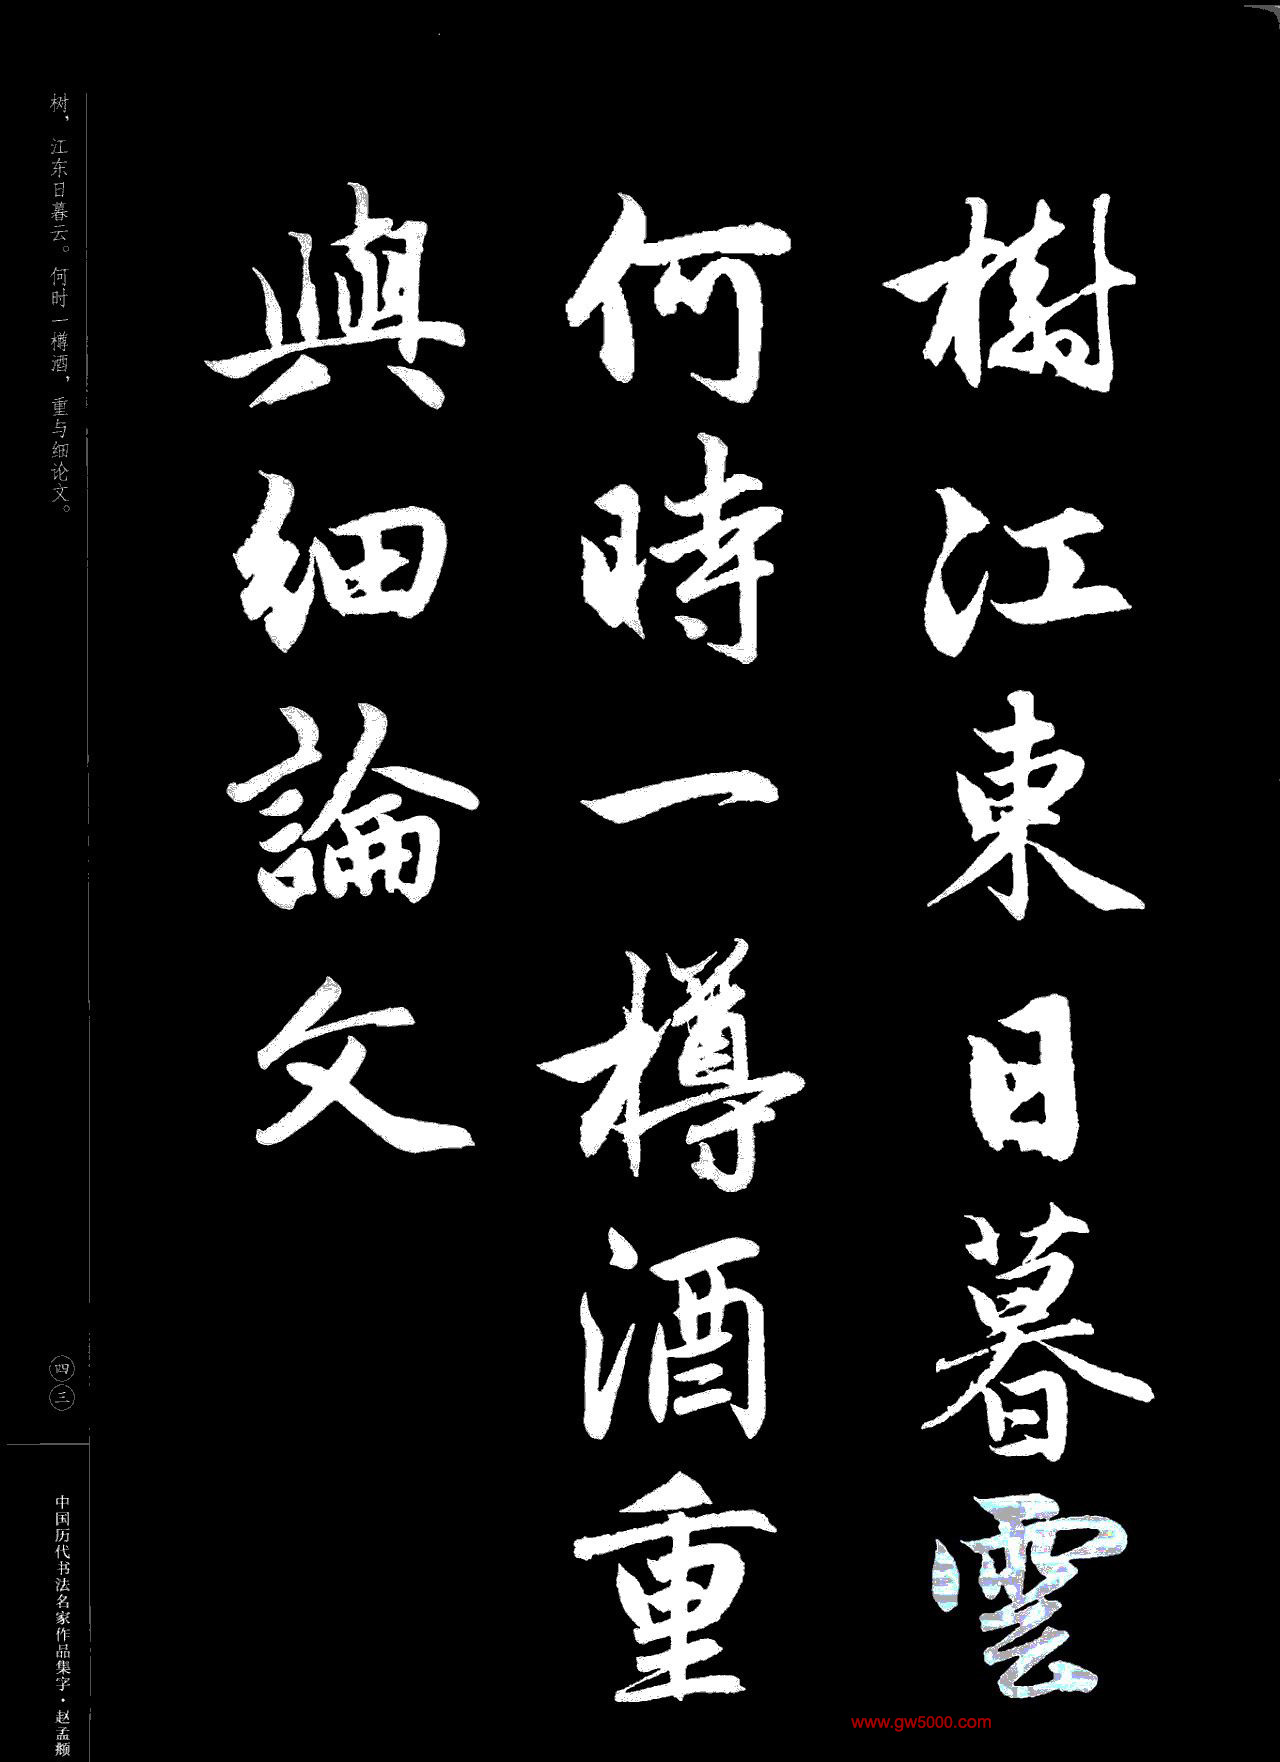 樹江東日暮雲
何時一樽酒重
與細論文
树，江东日暮云。何时一樽酒，重与细论文。
四三
中国历代书法名家作品集字·赵孟頫
www.gw5000.com